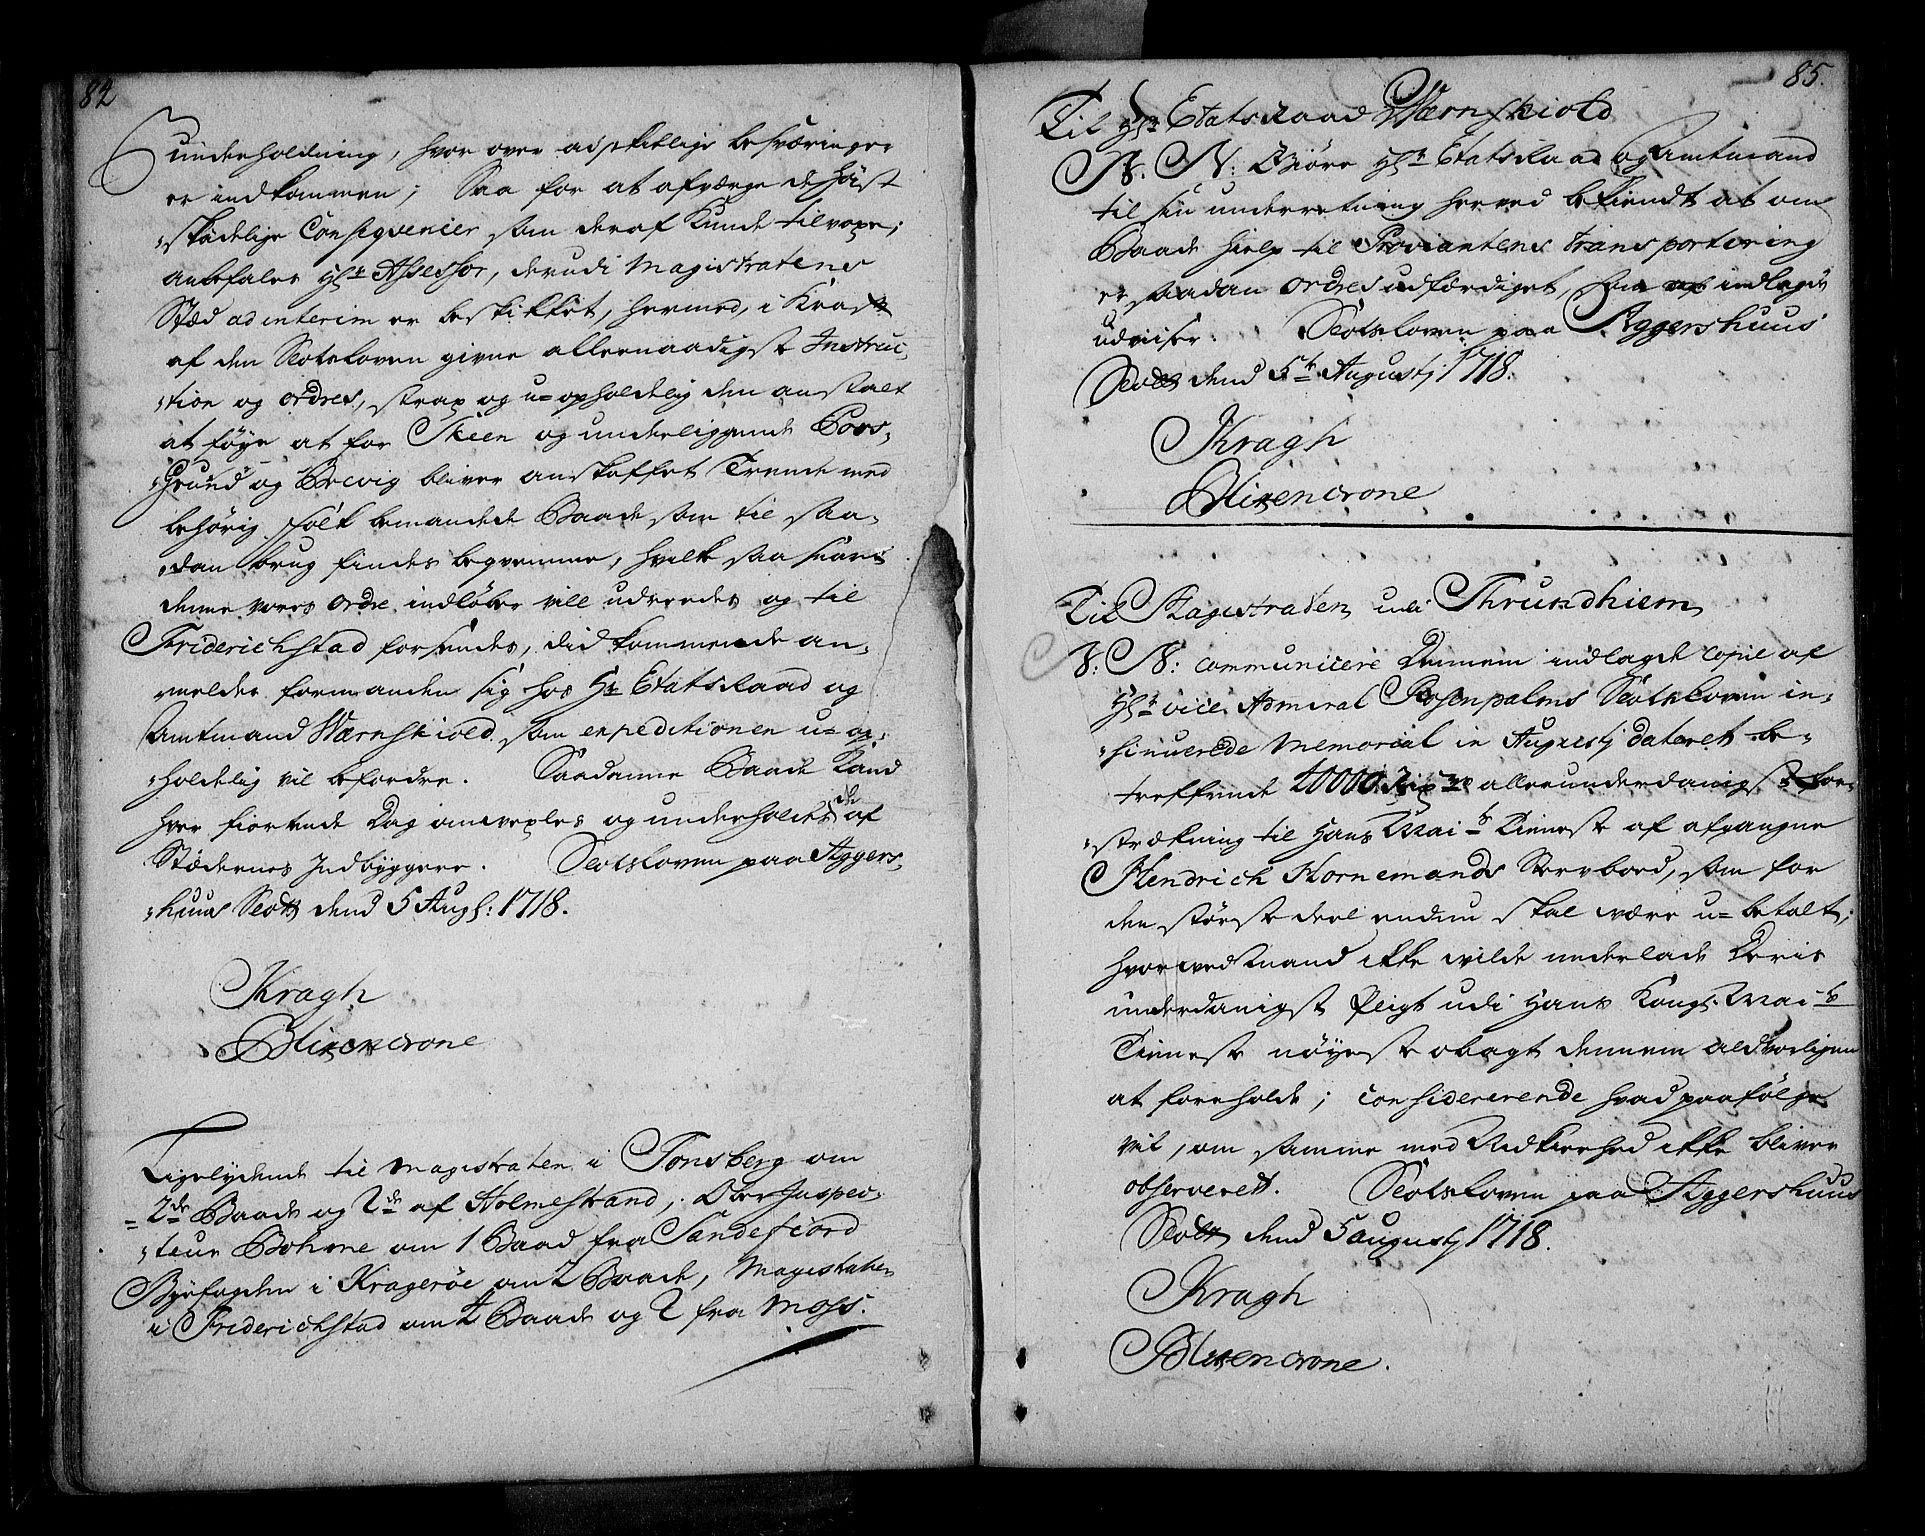 84
underholdning, hvor over adskillige besværinger
er indkommen; Saa for at afværge de høist
skadelige Conseqvencier som deraf kunde tilvoxe;
anbefales Hr Assessor, der udi Magistratens
Stæd ad interim er beskikket, hermed, i Kraft
af den Slotsloven givne allernaadigst Instruc-
tion og ordres, strax og u-opholdelig den anstalt
at føye at for Skien og underliggende Pors-
Grund og Brevig bliver anskaffet Trende med
behörig folk bemandede Baade som til saa-
dan brug findes beqvemme, hvilke saa snart
denne vores ordre indløber vill udreedes og til
Friderichstad forsendes, did kommende an-
melder formanden sig hos Hr Etatsraad og
Amtmand Wærnskiold som expeditionen u-op-
holdelig vil befordre. Saadanne Baade Kand
hver fiortende Dag omvexles og underholdes af de
Stædernes Indbyggere. Slotsloven paa Aggers-
huus Slott dend 5 Aug: 1718.
Kragh
Blixencrone
Ligelydende til Magistraten i Tonsberg om
2de Baade og 2de af Holmestrand, Ober Inspec-
teur Bohme om 1 Baad fra Sandefiord
Byefogden i Kragerøe om 2 Baade, Magistraten
i Friderichstad om 4 Baade og 2 fra Moss.
85.
Til Hr Etatsraad Wærnskiold
N. N: Giøre Hr Etatsraad og Amtmand
til sin underretning herved bekiendt at om
Baade hielp til Proviantens transportering
er saadan ordres udfærdiget, som indlagde
udviiser. Slotsloven paa Aggershuus
Slott dend 5te Augustj 1718.
Kragh
Blixencrone
Til Magistraten udi Thrundhiem
N. N: communicere Dennem indlagde copie af
Hr vice Admiral Rosenpalms Slotsloven in-
sinuerede Memorial in Augustj dateret be-
treffende 10000 Rixdr allerunderdanigst for-
strækning til Hans Maits Tieneste af afgangne
Hendrich Hornemands Sterboed, som for
den største deel endnu skal være u-betalt;
hvorved mand ikke vilde underlade Deris
underdanigst Pligt udi Hans Kongl. Maits
Tieneste nøyeste obagt dennem aldvorligen
at foreholde; considererende hvad paafølge
vil, om samme med Nidkierhed ikke bliver
observeret. Slotsloven paa Aggershuus
Slott dend 5 augustj 1718.
Kragh
Blixencrone.